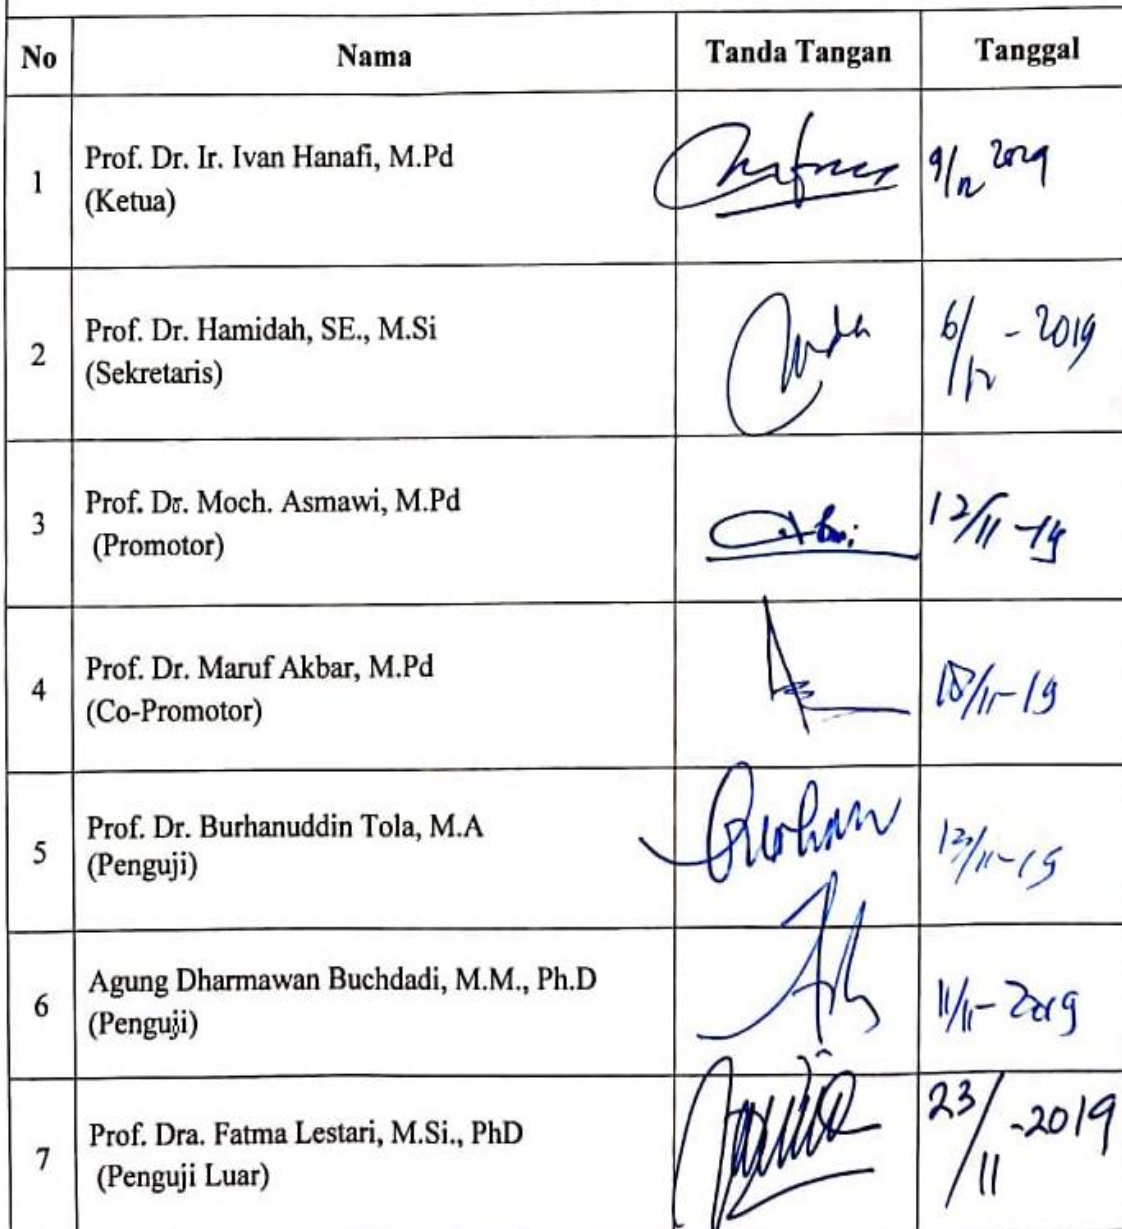 No Nama Tanda Tangan Tanggal
1 Prof. Dr. Ir. Ivan Hanafi, M.Pd
(Ketua)
9/12 2019
2 Prof. Dr. Hamidah, SE., M.Si
(Sekretaris)
6/12 - 2019
3 Prof. Dr. Moch. Asmawi, M.Pd
(Promotor)
12/11 -19
4 Prof. Dr. Maruf Akbar, M.Pd
(Co-Promotor)
18/11-19
5 Prof. Dr. Burhanuddin Tola, M.A
(Penguji)
Burhan
6 Agung Dharmawan Buchdadi, M.M., Ph.D
(Penguji)
11/11- 2019
7 Prof. Dra. Fatma Lestari, M.Si., PhD
(Penguji Luar)
23/11 -2019